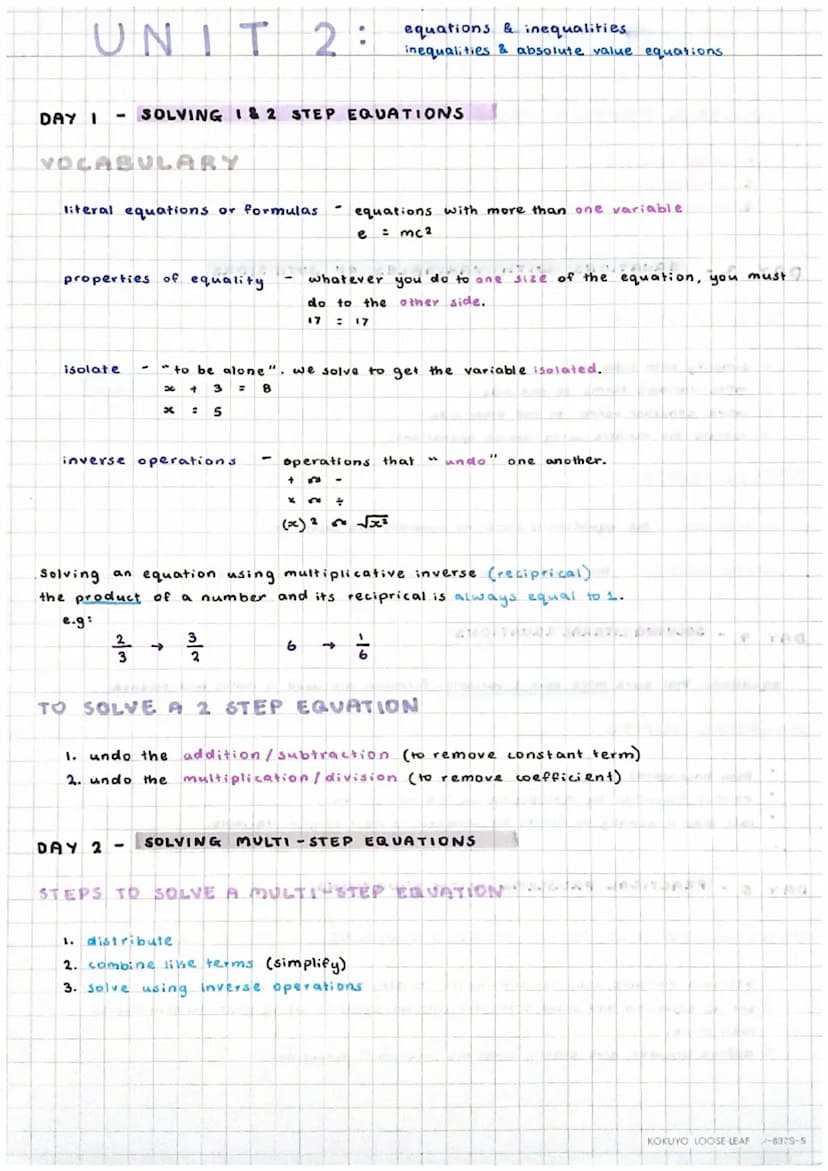 UNIT 2:
equations & inequalities
inequalities & absolute value equations
DAY 1 - SOLVING 1 & 2 STEP EQUATIONS
VOCABULARY
literal equations or formulas - equations with more than one variable
e = mc²
properties of equality - whatever you do to one size of the equation, you must
do to the other side.
17 = 17
isolate - "to be alone". we solve to get the variable isolated.
x + 3 = 8
x = 5
inverse operations - operations that "undo" one another.
+ ↷ -
× ↷ ÷
(x)² ↷ √x²
Solving an equation using multiplicative inverse (reciprical)
the product of a number and its reciprical is always equal to 1.
e.g:
2/3 → 3/2 6 → 1/6
TO SOLVE A 2 STEP EQUATION
1. undo the addition/subtraction (to remove constant term)
2. undo the multiplication/division (to remove coefficient)
DAY 2 - SOLVING MULTI-STEP EQUATIONS
STEPS TO SOLVE A MULTI-STEP EQUATION
1. distribute
2. combine like terms (simplify)
3. solve using inverse operations
KOKUYO LOOSE-LEAF ノ-837S-5